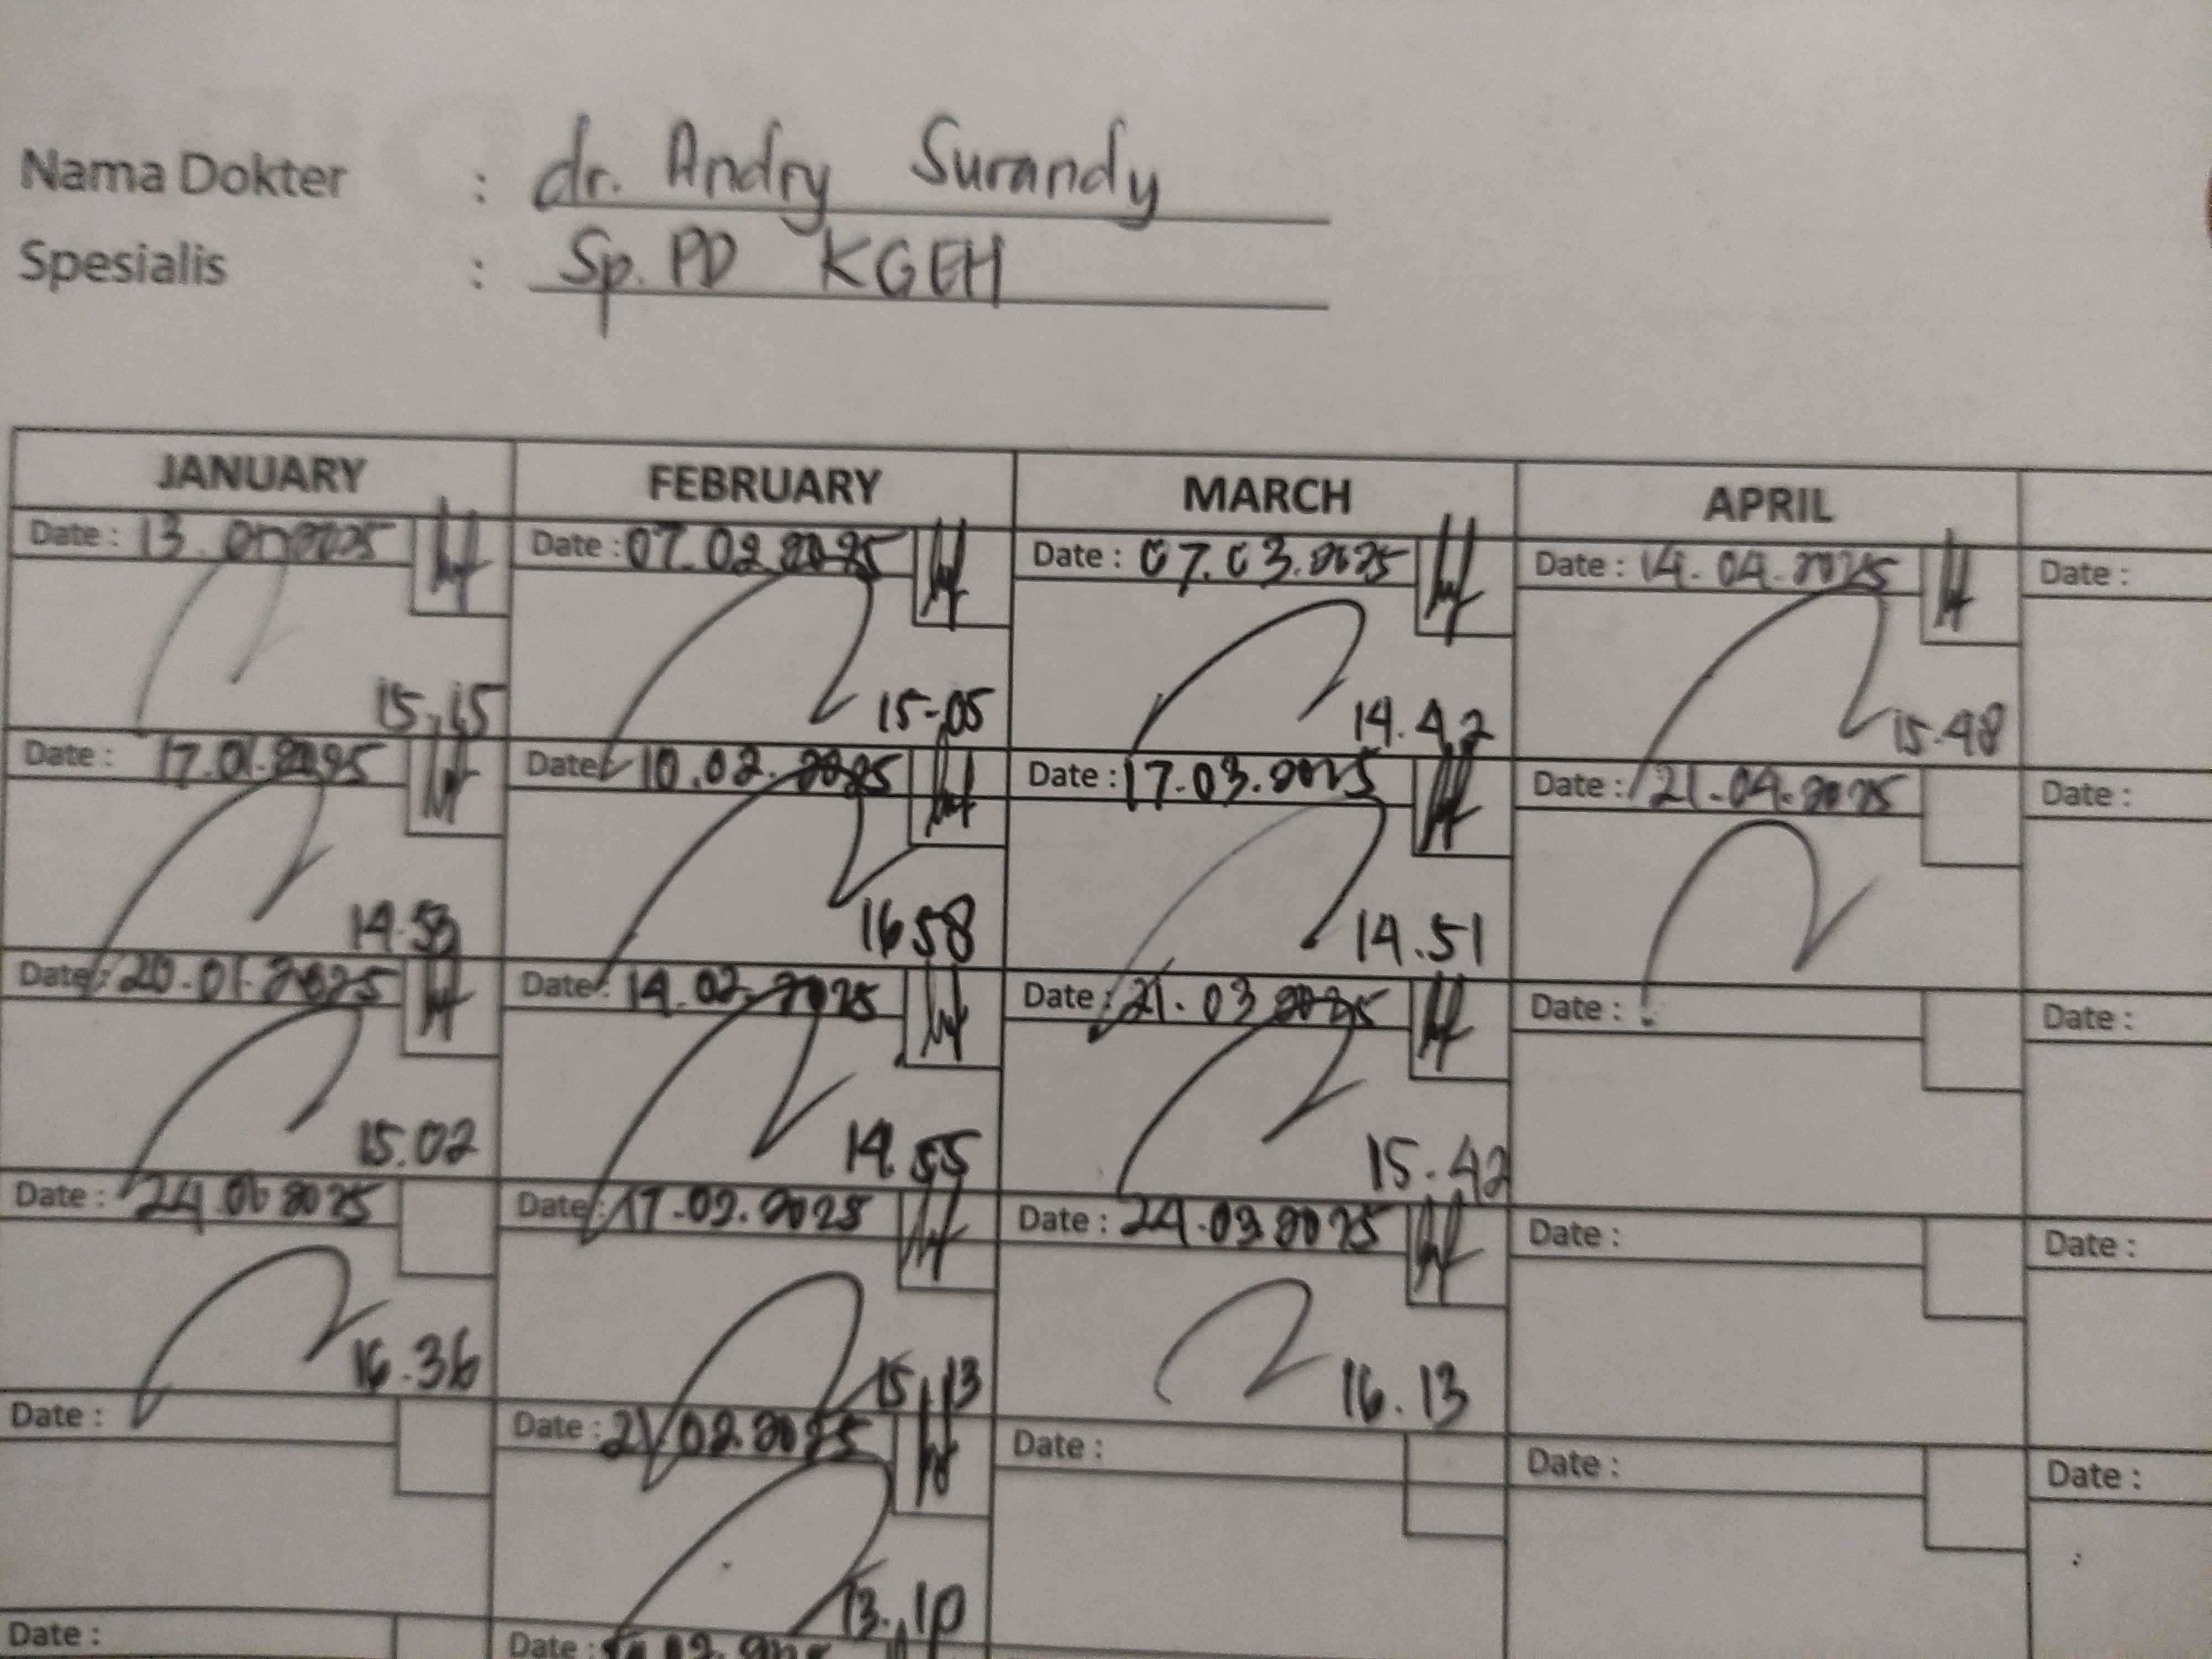 Nama Dokter : dr. Andry Surandy
Spesialis : Sp. PD KGEH
JANUARY FEBRUARY MARCH APRIL
Date : 13. Date : 07.02 2025 Date : 07.03.2025 Date : 14.04.2025 Date :
15.15 15-05 14.42 15.48
Date : 17.01.2025 Date : 10.02.2025 Date : 17.03.2025 Date : 21.04.2025 Date :
14.53 16 58 14.51
Date : 20.01.2025 Date : 14.02.2025 Date : 21.03 2025 Date : Date :
15.02 14.55 15.42
Date : 24.01 2025 Date : 17.02.2025 Date : 24.03 2025 Date : Date :
16.36 15.13 16.13
Date : Date : 21/02.2025 Date : Date : Date :
13.10
Date : Date :